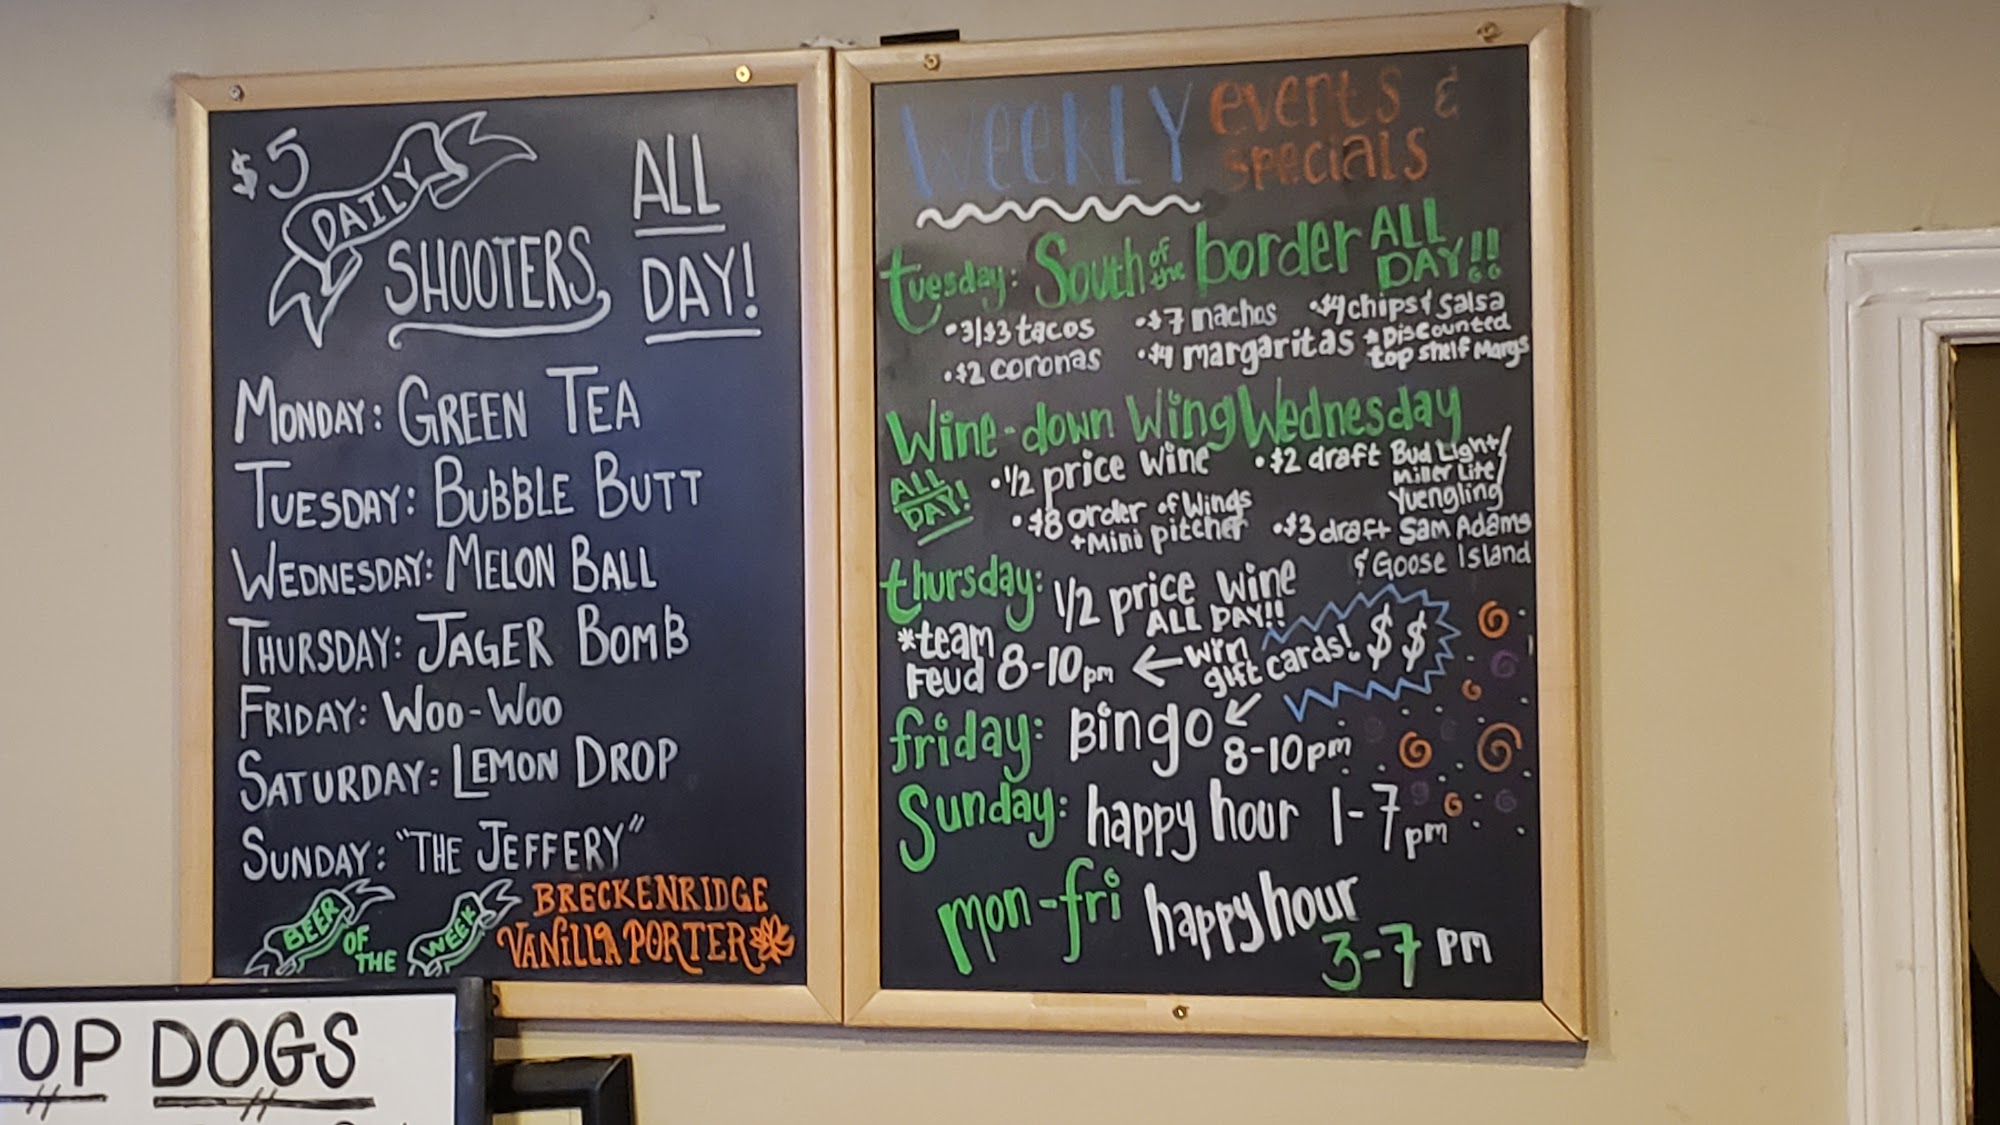 $5 DAILY SHOOTERS, ALL DAY!
MONDAY: GREEN TEA
TUESDAY: BUBBLE BUTT
WEDNESDAY: MELON BALL
THURSDAY: JAGER BOMB
FRIDAY: WOO-WOO
SATURDAY: LEMON DROP
SUNDAY: "THE JEFFERY"
BEER OF THE WEEK BRECKENRIDGE
VANILLA PORTER
WEEKLY events &
specials
tuesday: South of the border ALL DAY!!
•3/$3 tacos •$7 nachos •$4 chips & salsa
•$2 coronas •$4 margaritas * Discounted
top shelf Margs
Wine-down Wing Wednesday
ALL DAY!
•1/2 price wine
•$8 order of Wings
+Mini pitcher
•$2 draft Bud Light/
Miller Lite/
Yuengling
•$3 draft Sam Adams
& Goose Island
thursday: 1/2 price wine
ALL DAY!!
*team
Feud 8-10pm ← win
gift cards! $$
friday: Bingo
8-10pm
Sunday: happy hour 1-7pm
mon-fri happy hour
3-7 pm
TOP DOGS